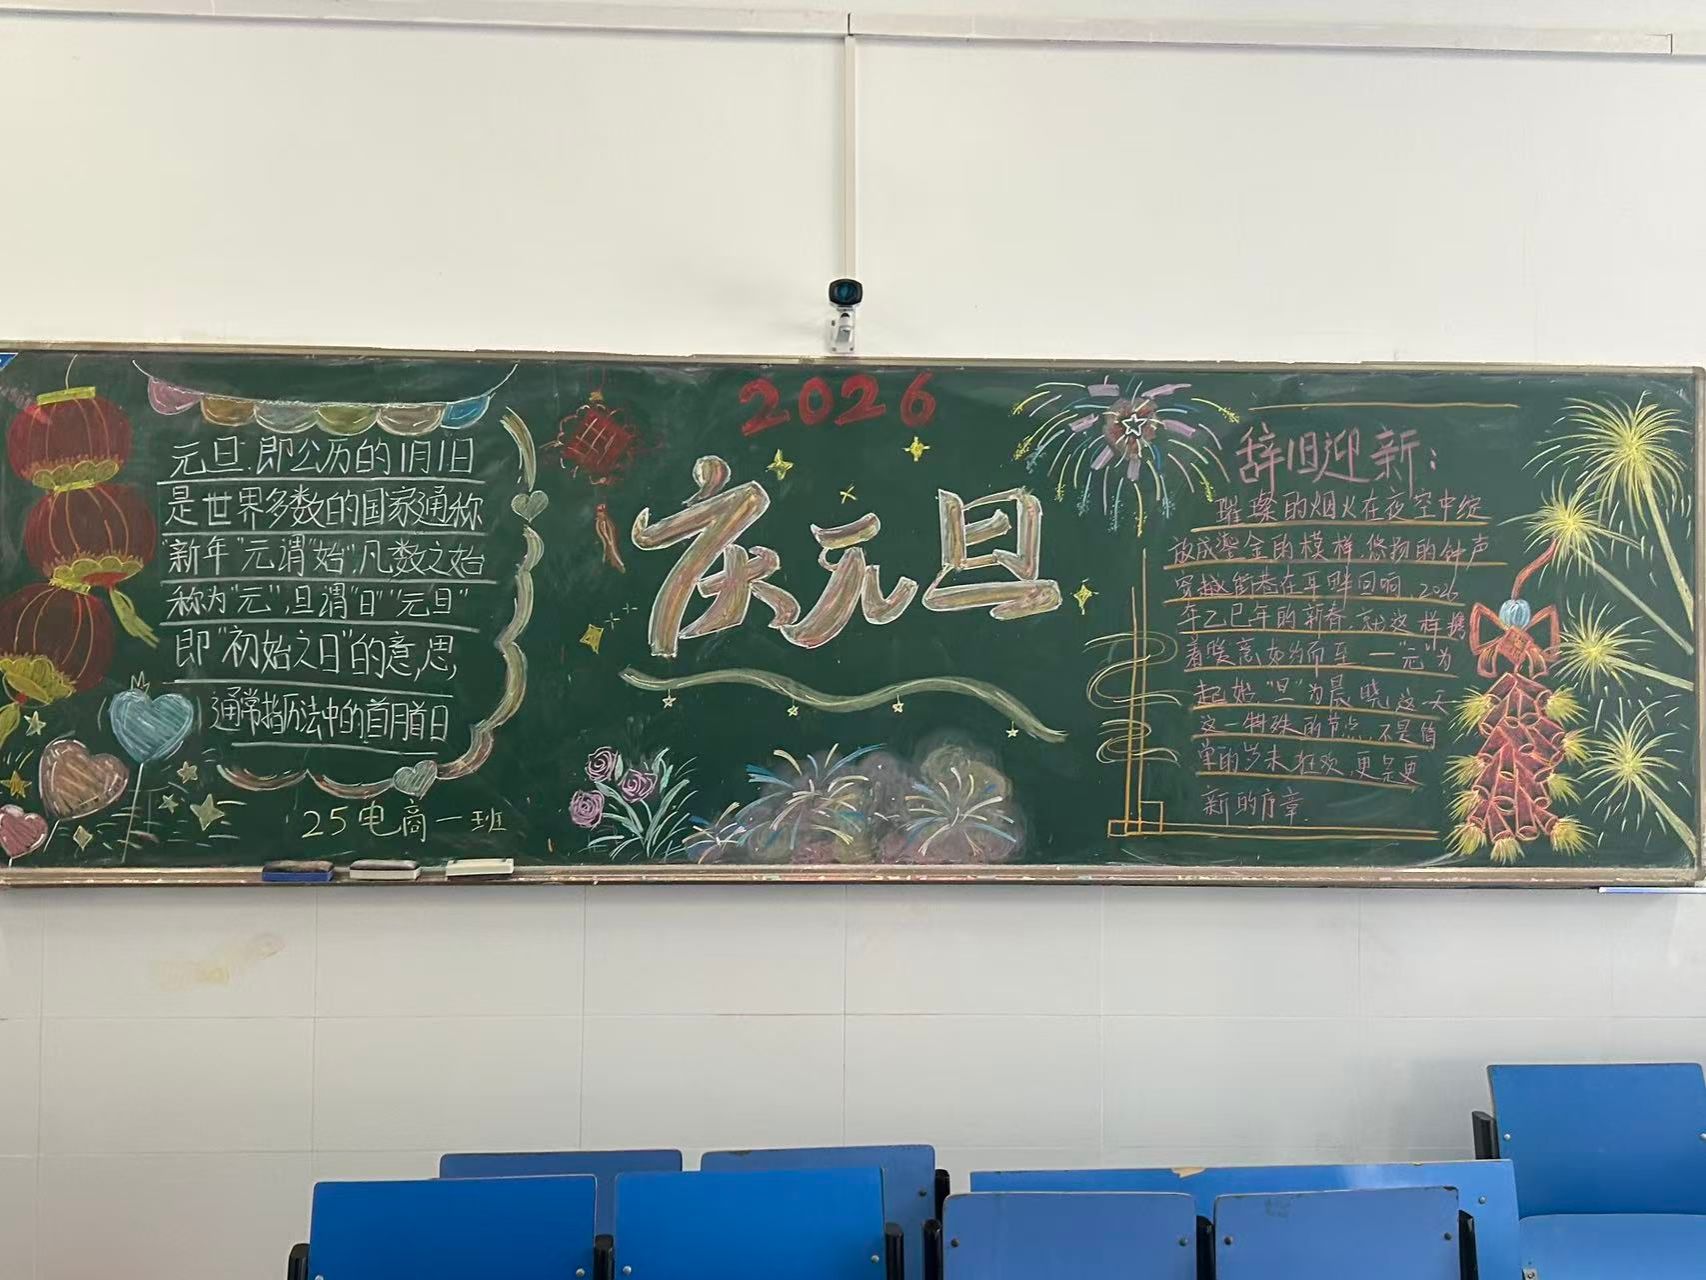 元旦,即公历的1月1日
是世界多数的国家通称
"新年"元谓"始",凡数之始
称为"元",旦谓"日""元旦"
即"初始之日"的意思,
通常指历法中的首月首日
25电商一班
2026
庆元旦
辞旧迎新:
璀璨的烟火在夜空中绽
放成鎏金的模样,悠扬的钟声
穿越街巷在耳畔回响,2026
年乙巳年的新春,就这样携
着暖意如约而至,一"元"为
起始"旦"为晨晓,这一天
这一特殊的节点,不是简
单的岁末狂欢,更是更
新的序章.